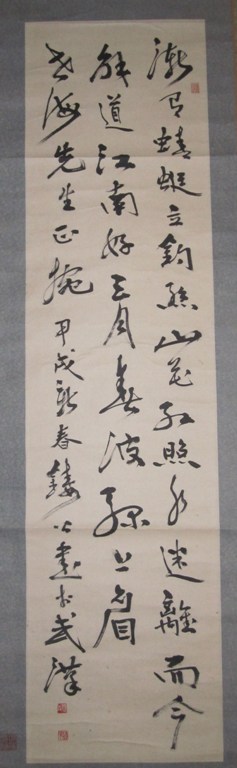 漸有蜻蜓立釣絲山花红照水迷離而今
解道江南好三月春波绿上眉
海先生正腕 甲戌新春 書於武漢